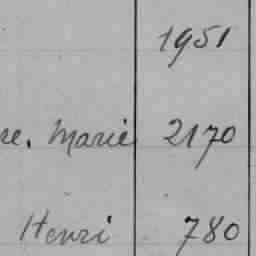 1951
re. Marie 2170
Henri 780